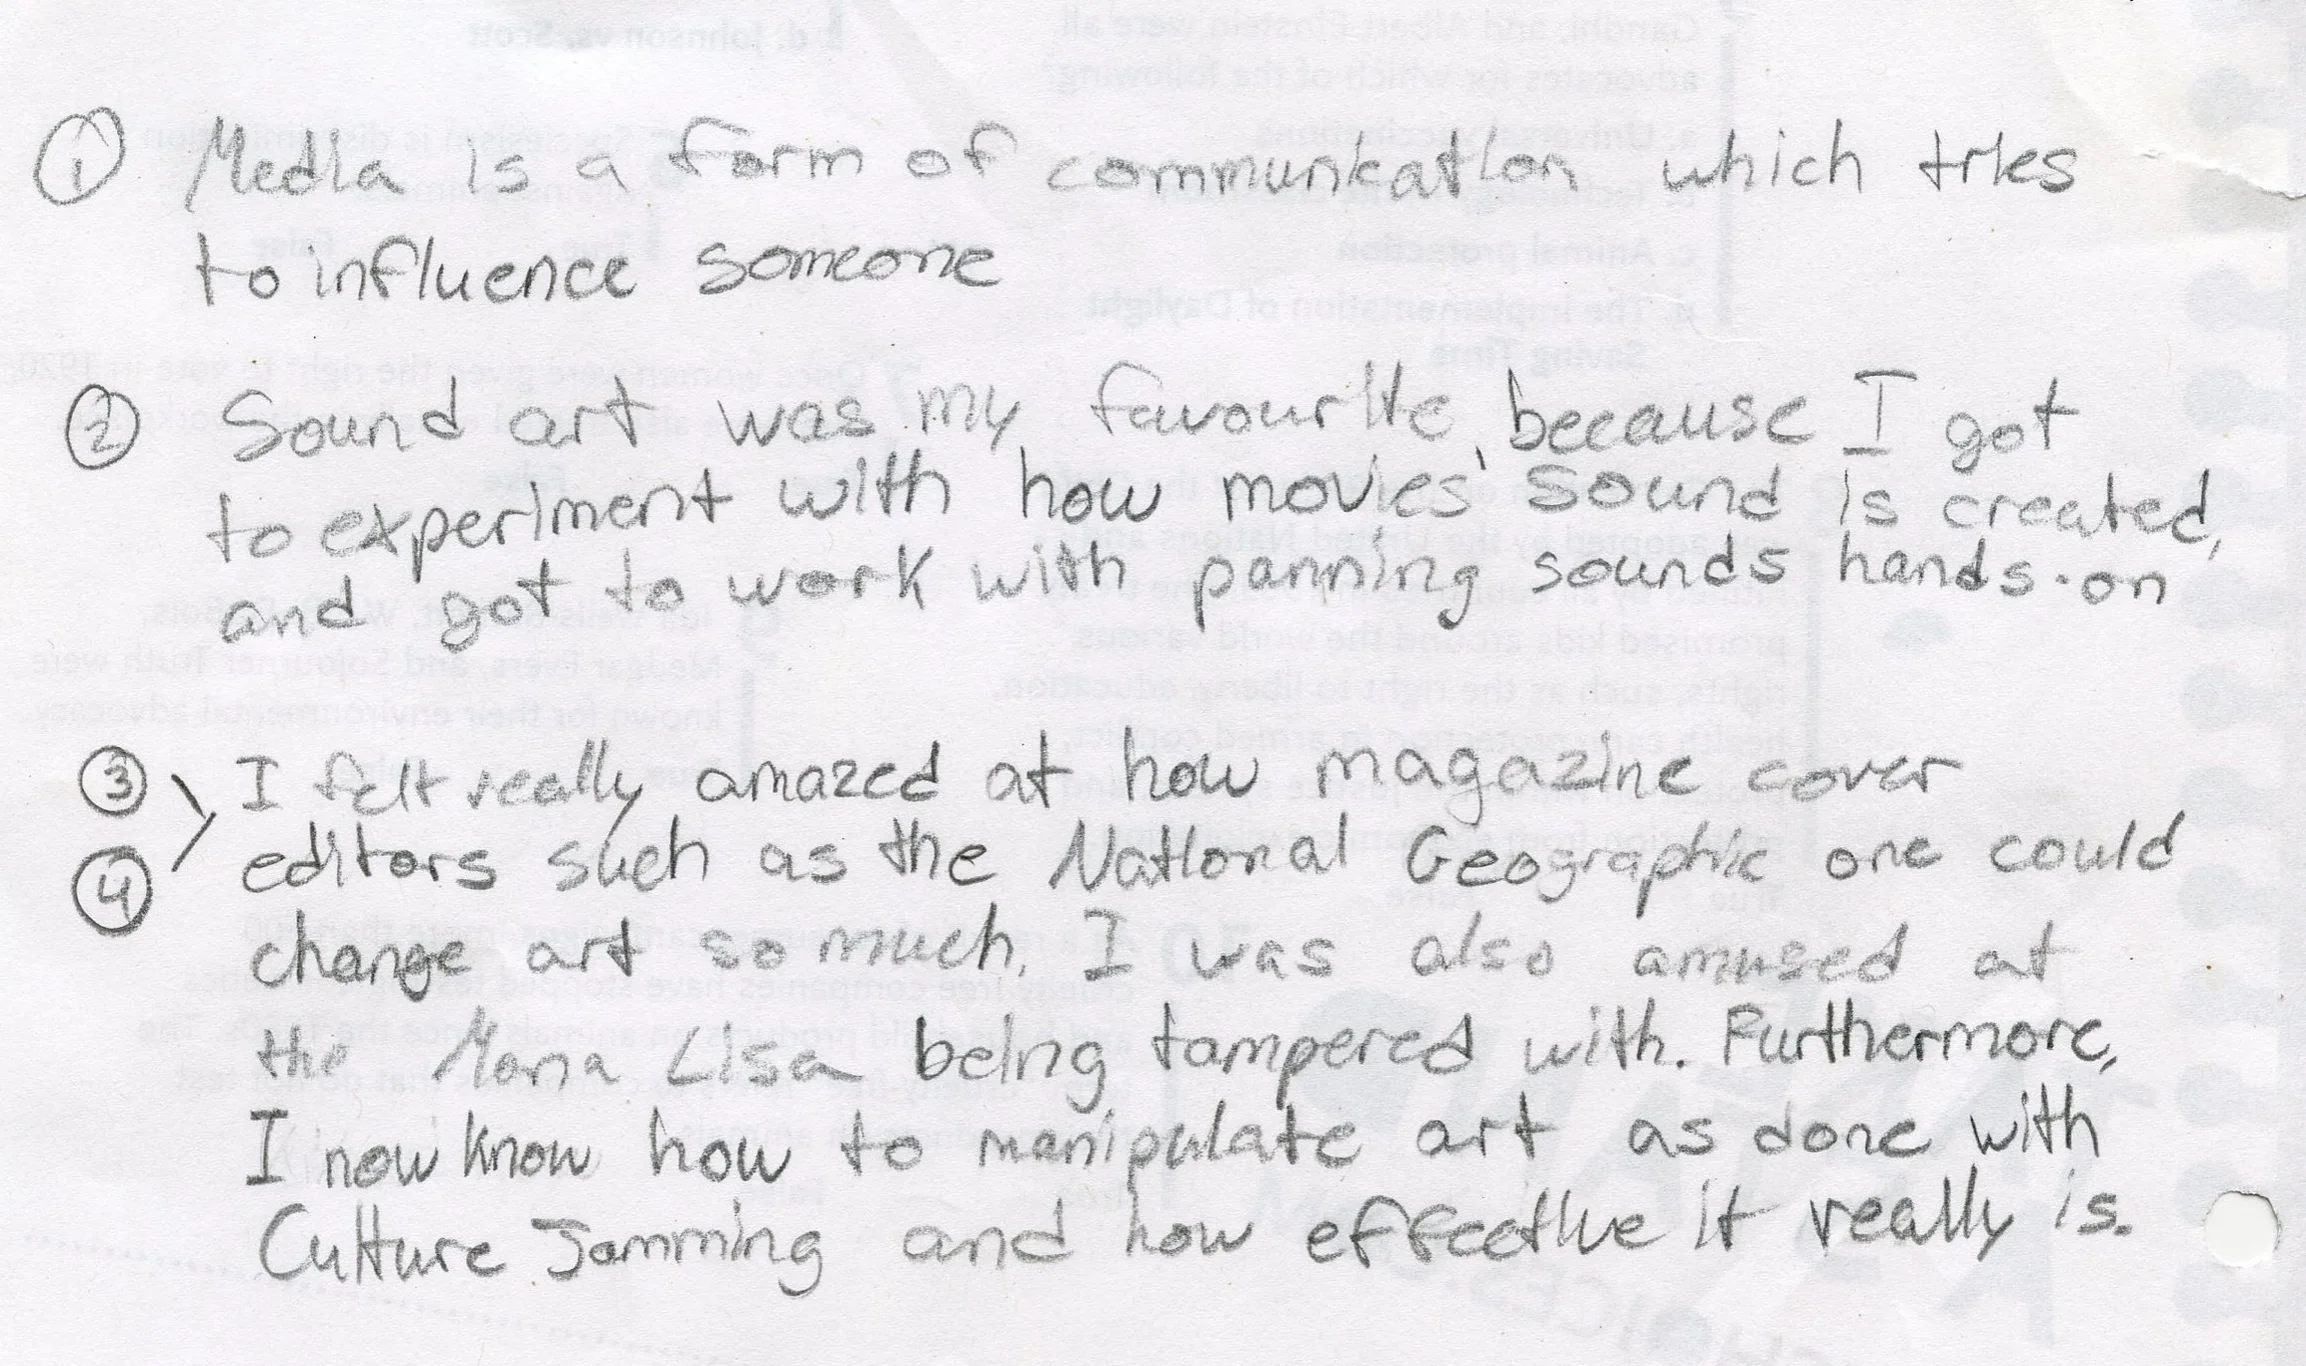 ① Media is a form of communication which tries
to influence someone
② Sound art was my favourite, because I got
to experiment with how movies' sound is created,
and got to work with panning sounds hands-on
③ I felt really amazed at how magazine cover
④ editors such as the National Geographic one could
change art so much. I was also amused at
the Mona Lisa being tampered with. Furthermore,
I now know how to manipulate art as done with
Culture Jamming and how effective it really is.